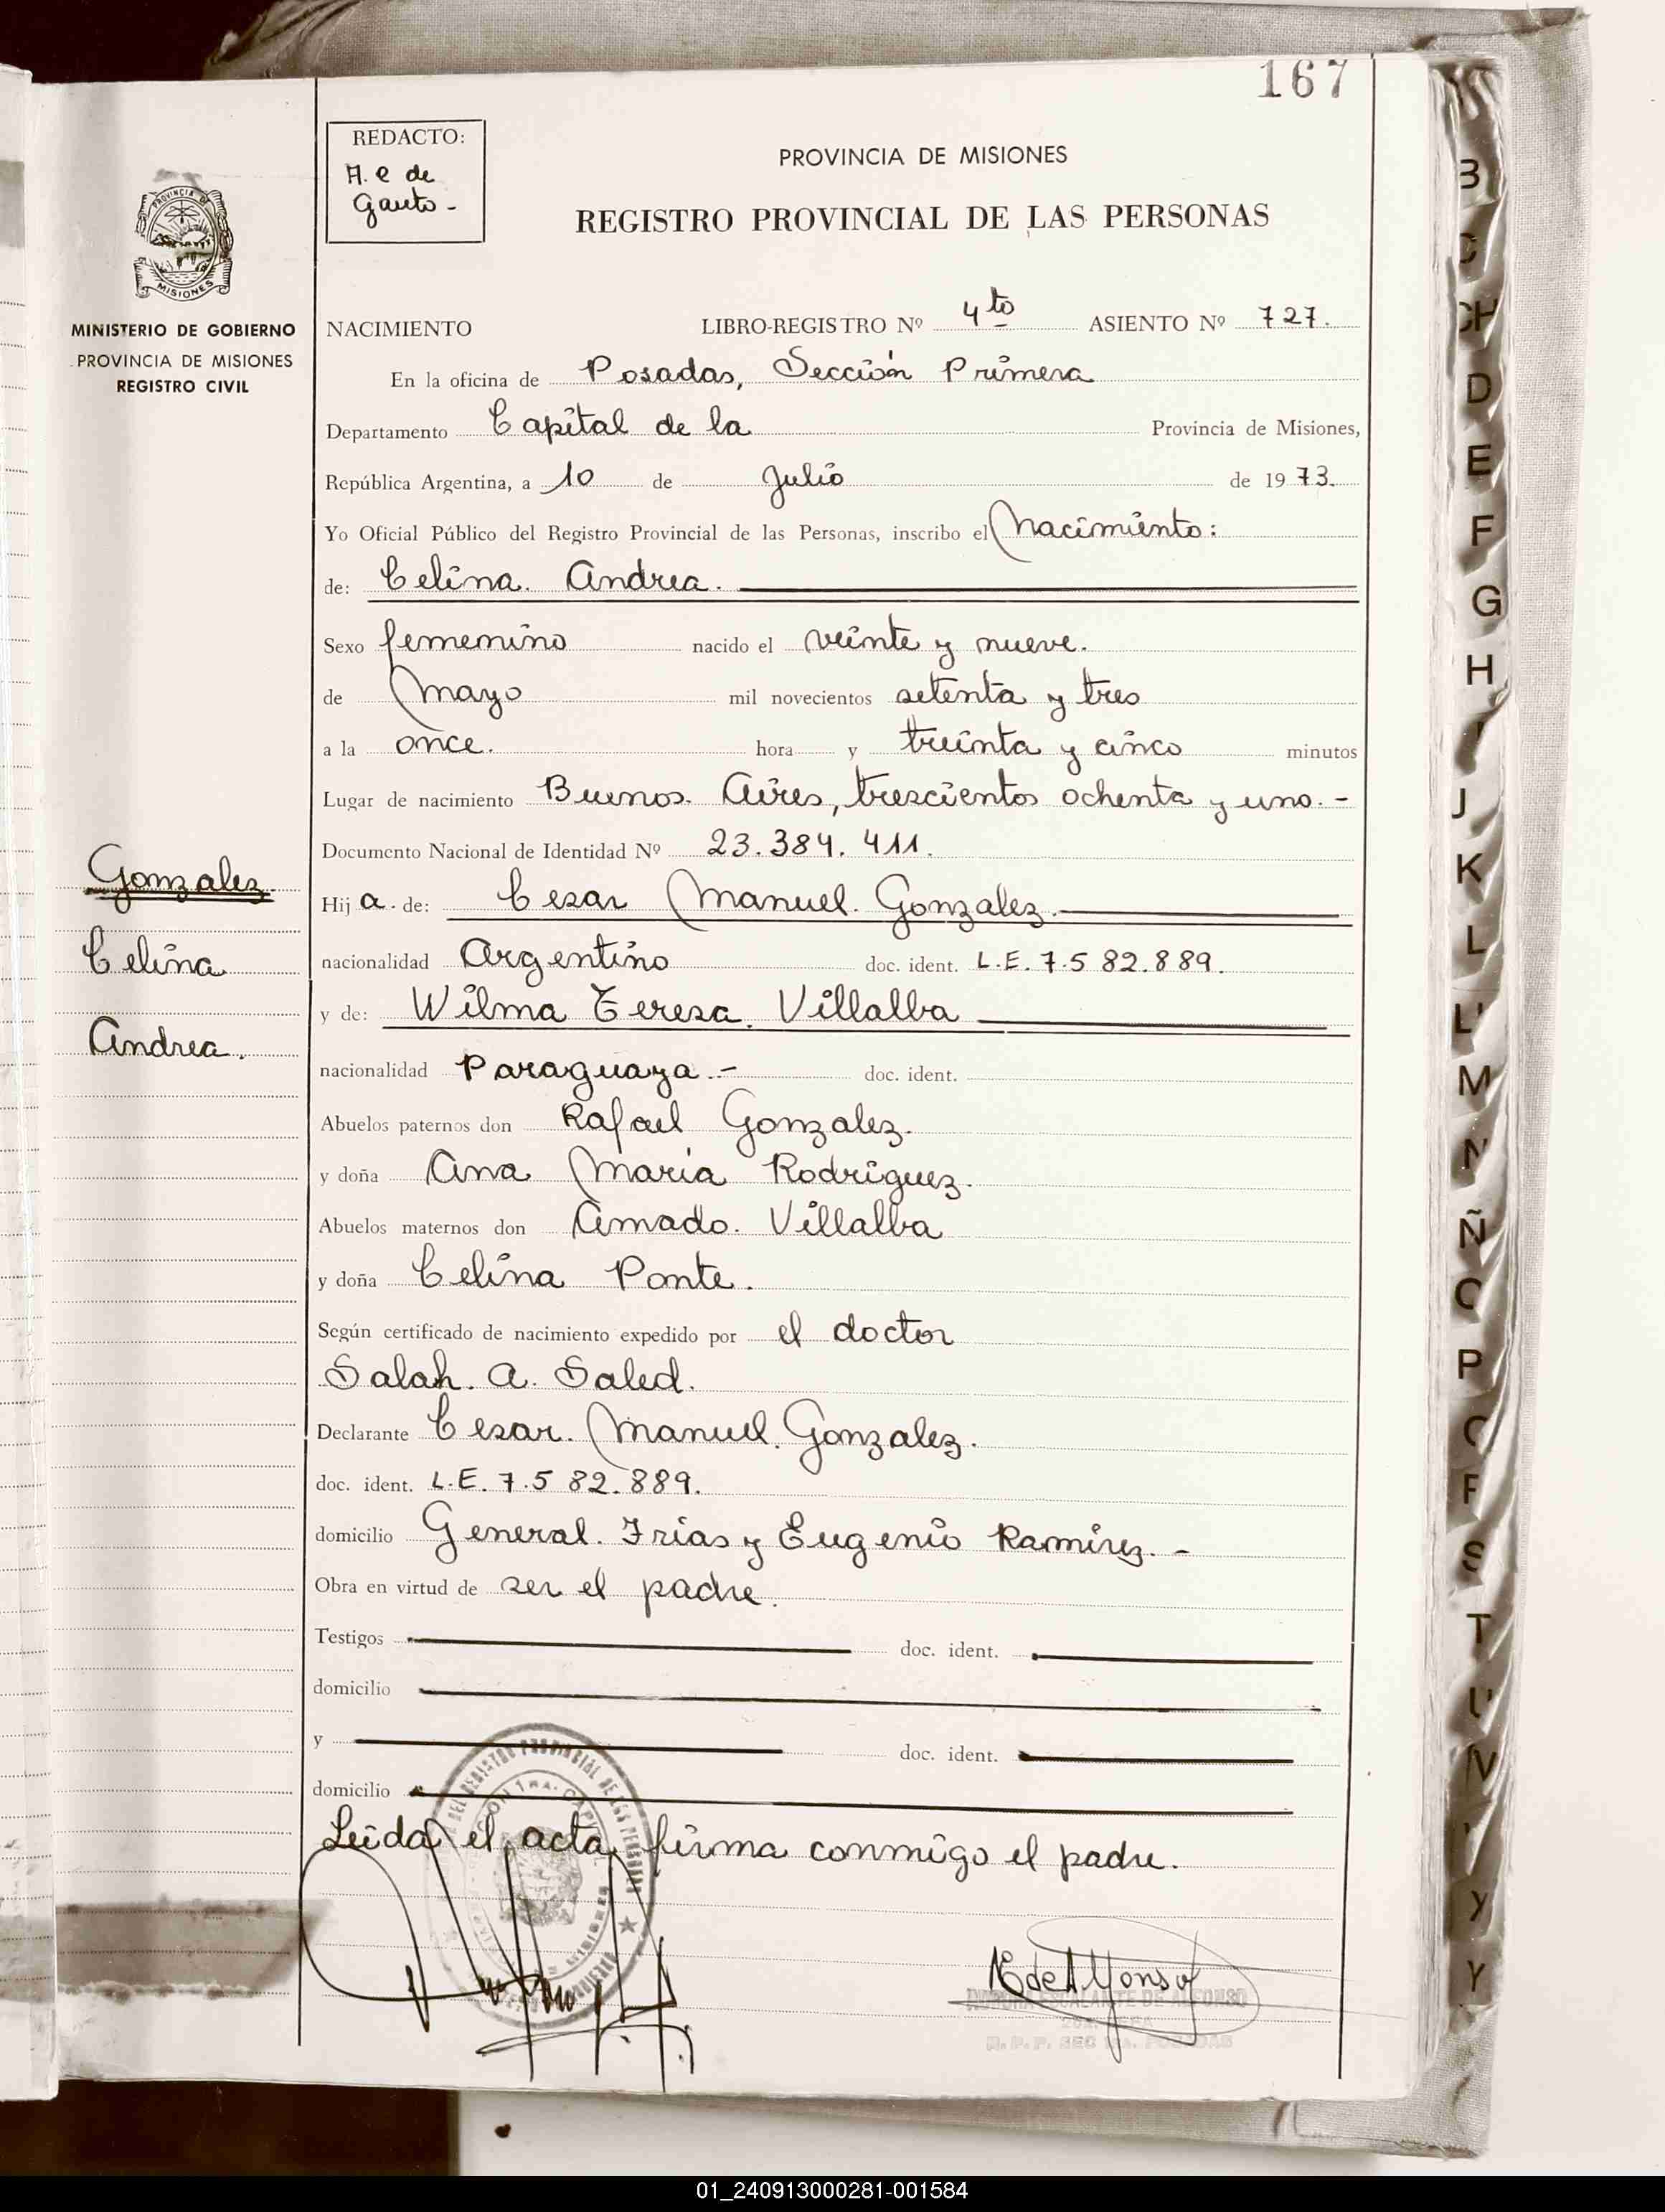 167
REDACTO:
A. e de
Gauto -
PROVINCIA DE MISIONES
REGISTRO PROVINCIAL DE LAS PERSONAS
PROVINCIA DE
MISIONES
MINISTERIO DE GOBIERNO
PROVINCIA DE MISIONES
REGISTRO CIVIL
NACIMIENTO LIBRO-REGISTRO Nº 4to ASIENTO Nº 727.
En la oficina de Posadas, Sección Primera
Departamento Capital de la Provincia de Misiones,
República Argentina, a 10 de Julio de 1973.
Yo Oficial Público del Registro Provincial de las Personas, inscribo el Nacimiento:
de: Celina. Andrea.
Sexo femenino nacido el veinte y nueve.
de mayo mil novecientos setenta y tres
a la once. hora y treinta y cinco minutos
Lugar de nacimiento Buenos. Aires, trescientos ochenta y uno. -
Documento Nacional de Identidad Nº 23.384.411.
Hija. de: Cesar Manuel. Gonzalez.
nacionalidad Argentino doc. ident. L.E. 7.582.889.
y de: Wilma Teresa. Villalba
nacionalidad Paraguaya. - doc. ident.
Abuelos paternos don Rafael Gonzalez.
y doña Ana Maria Rodriguez.
Abuelos maternos don Amado. Villalba
y doña Celina Ponte.
Según certificado de nacimiento expedido por el doctor
Salah. A. Saled.
Declarante Cesar. Manuel. Gonzalez.
doc. ident. L.E. 7.582.889.
domicilio General. Frias y Eugenio Ramirez. -
Obra en virtud de ser el padre.
Testigos doc. ident.
domicilio
y doc. ident.
domicilio
Leida el acta, firma conmigo el padre.
Gonzalez.
Celina
Andrea.
ESCALANTE DE ALFONSO
R. P. P. SEC 1ra. POSADAS
B
C
CH
D
E
F
G
H
I
J
K
L
LL
M
N
Ñ
O
P
Q
R
S
T
U
V
Y
Y
01_240913000281-001584